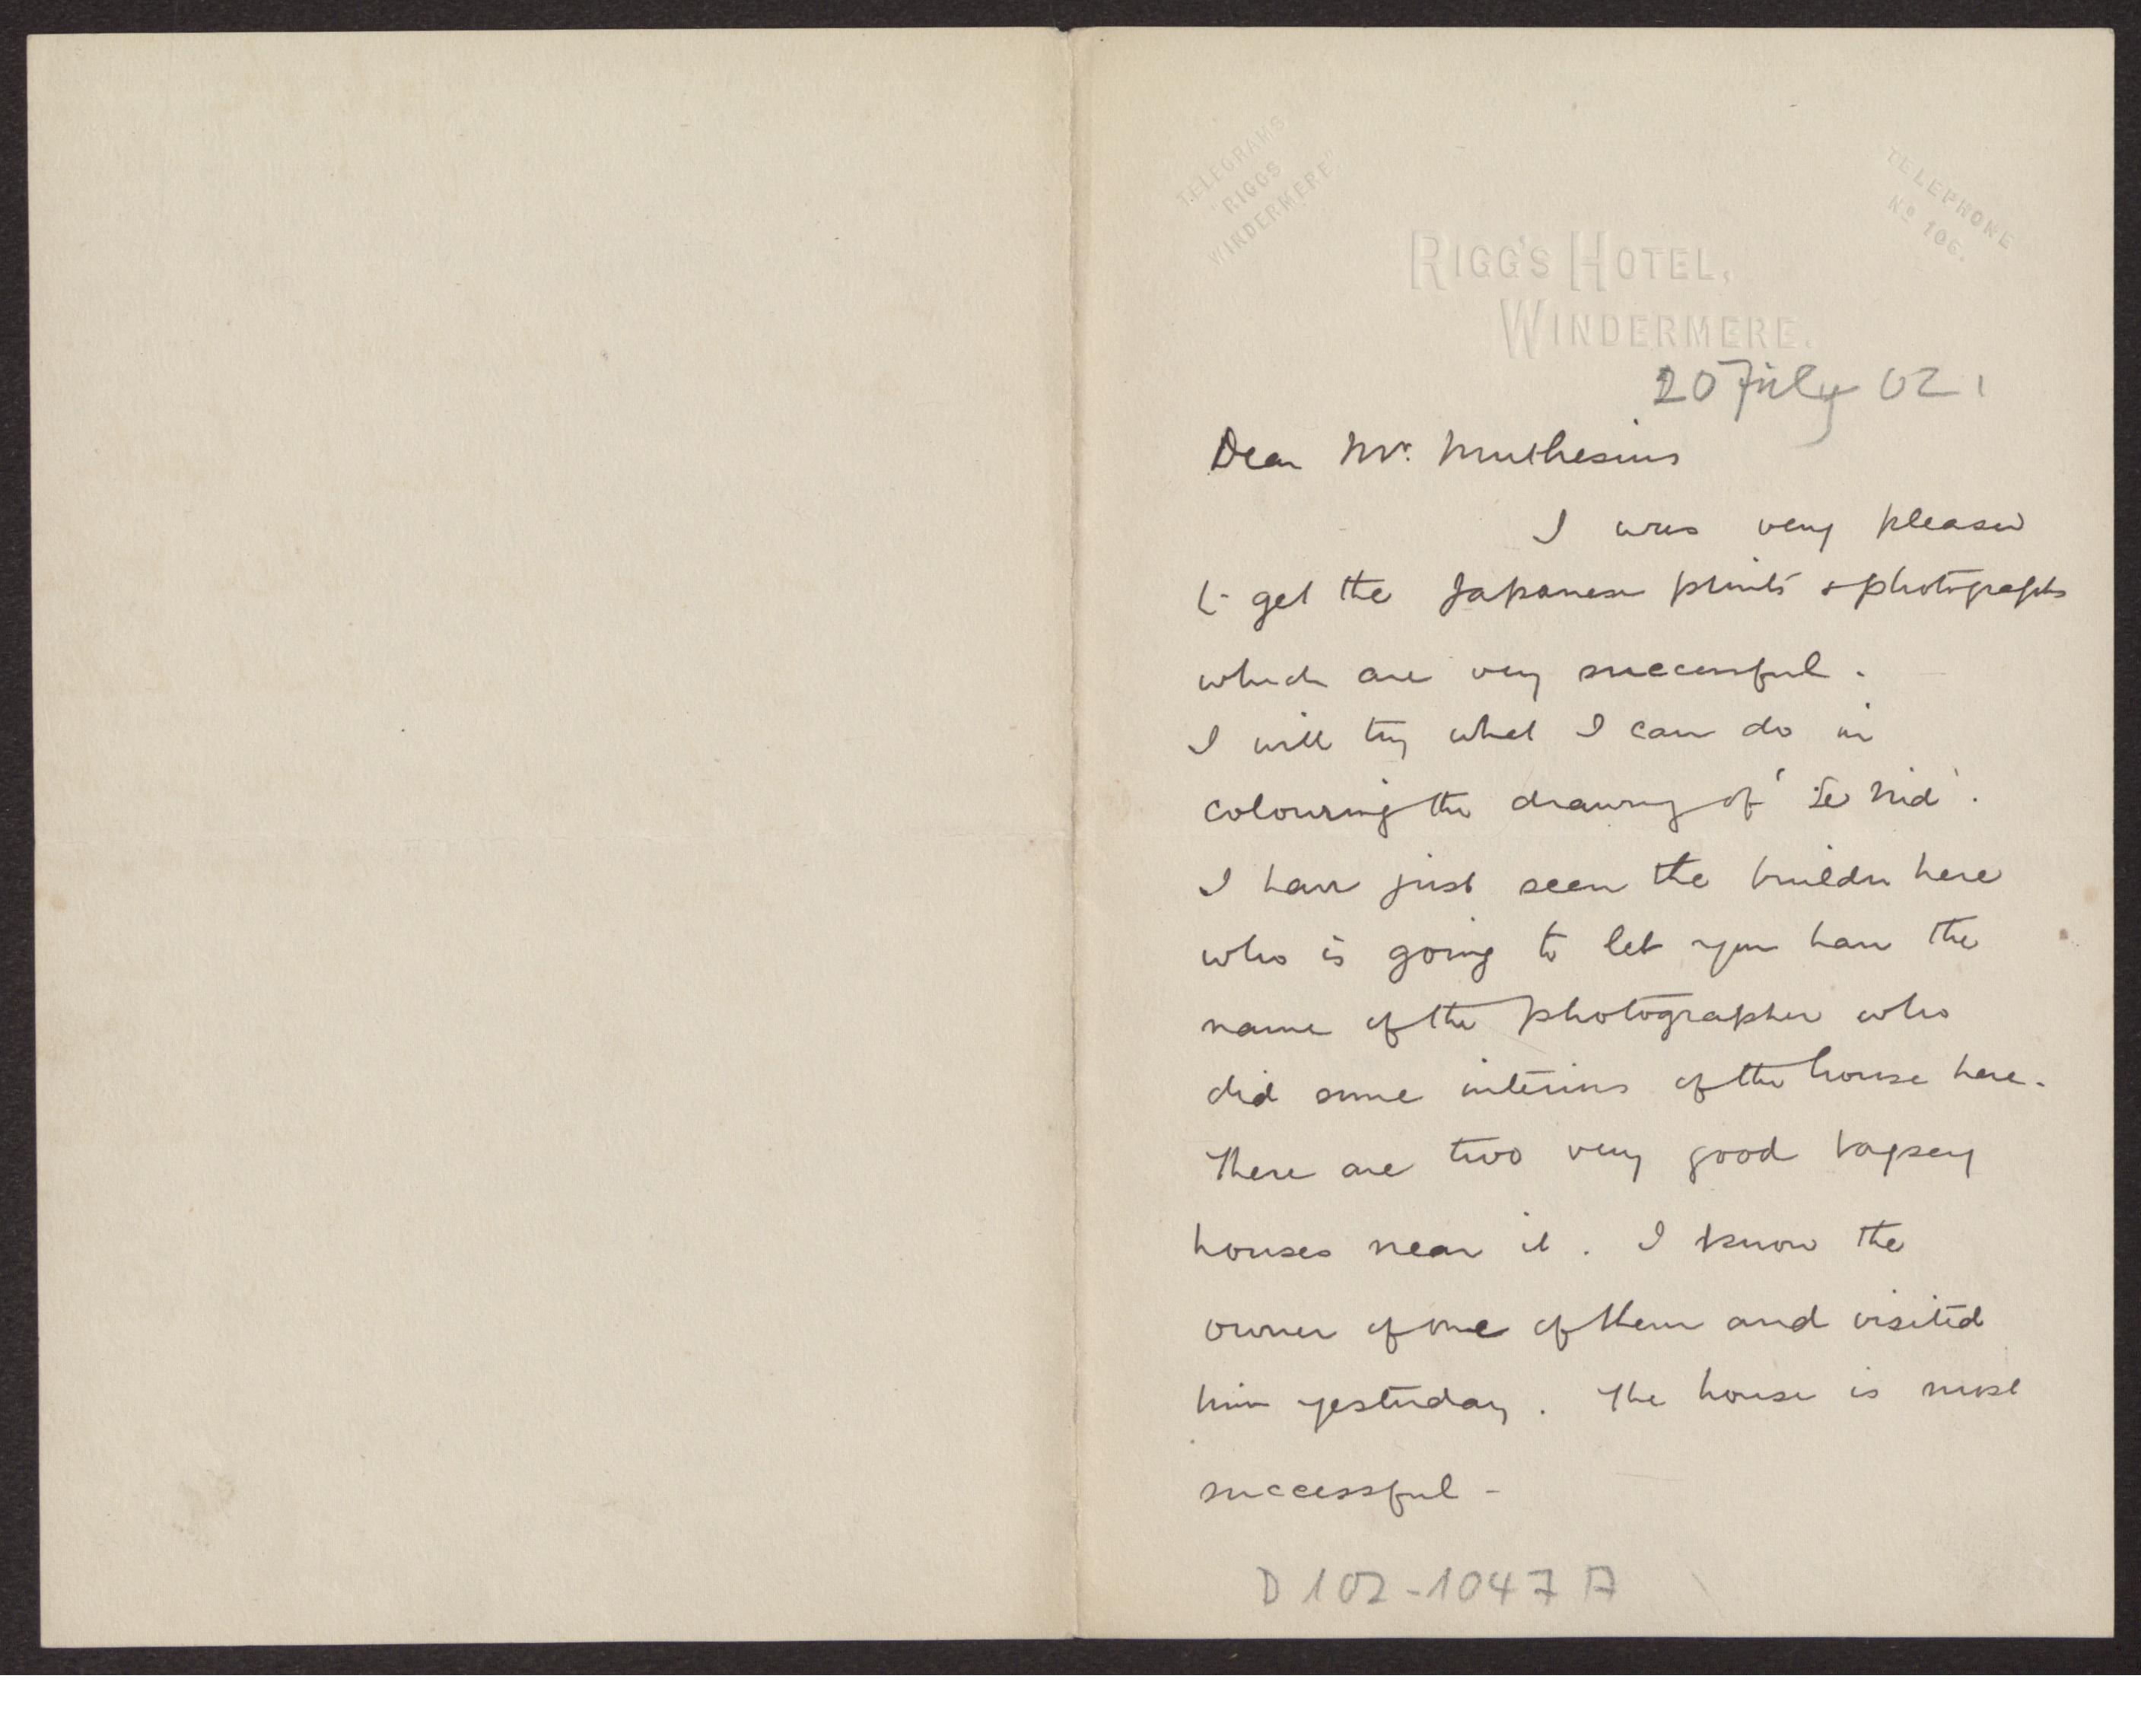 TELEGRAMS
"RIGGS
WINDERMERE"
TELEPHONE
No 106.
RIGG'S HOTEL,
WINDERMERE.
20 July 02.
Dear Mr. Muthesius
I was very pleased
to get the Japanese prints & photographs
which are very successful.
I will try what I can do in
colouring the drawing of 'Le Nid'.
I have just seen the builder here
who is going to let you have the
name of the photographer who
did some interiors of the house here.
There are two very good
houses near it. I know the
owner of one of them and visited
him yesterday. The house is most
successful -
D 102-1047 A